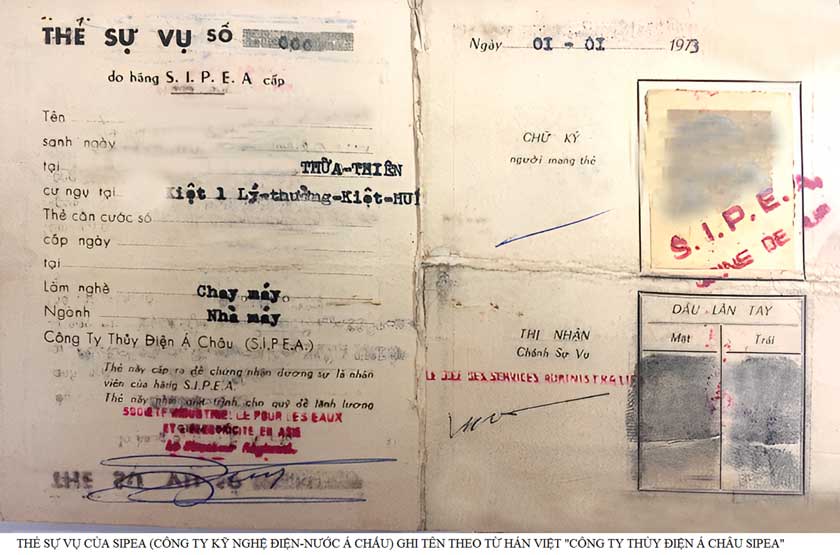 THẺ SỰ VỤ SỐ 000
do hãng S.I.P.E.A cấp
Tên
sanh ngày
tại THỪA-THIÊN
cư ngụ tại Kiệt 1 Lý-thường-Kiệt-HUẾ
Thẻ căn cước số
cấp ngày
tại
Làm nghề Chạy máy
Ngành Nhà máy
Công Ty Thủy Điện Á Châu (S.I.P.E.A.)
Thẻ này cấp ra để chứng nhận đương sự là nhân
viên của hãng S.I.P.E.A.
Thẻ này phải xuất trình cho quỹ để lãnh lương
SOCIETE INDUSTRIELLE POUR LES EAUX
ET ELECTRICITE EN ASIE
Le Directeur Régional
THẺ SỰ VỤ SỐ
Ngày 01 - 01 1973
CHỮ KÝ
người mang thẻ
S.I.P.E.A
USINE DE
THỊ NHẬN
Chánh Sự Vụ
LE CHEF DES SERVICES ADMINISTRATIF
DẤU LĂN TAY
Mặt Trái
THẺ SỰ VỤ CỦA SIPEA (CÔNG TY KỸ NGHỆ ĐIỆN-NƯỚC Á CHÁU) GHI TÊN THEO TỪ HÁN VIỆT "CÔNG TY THỦY ĐIỆN Á CHÂU SIPEA"